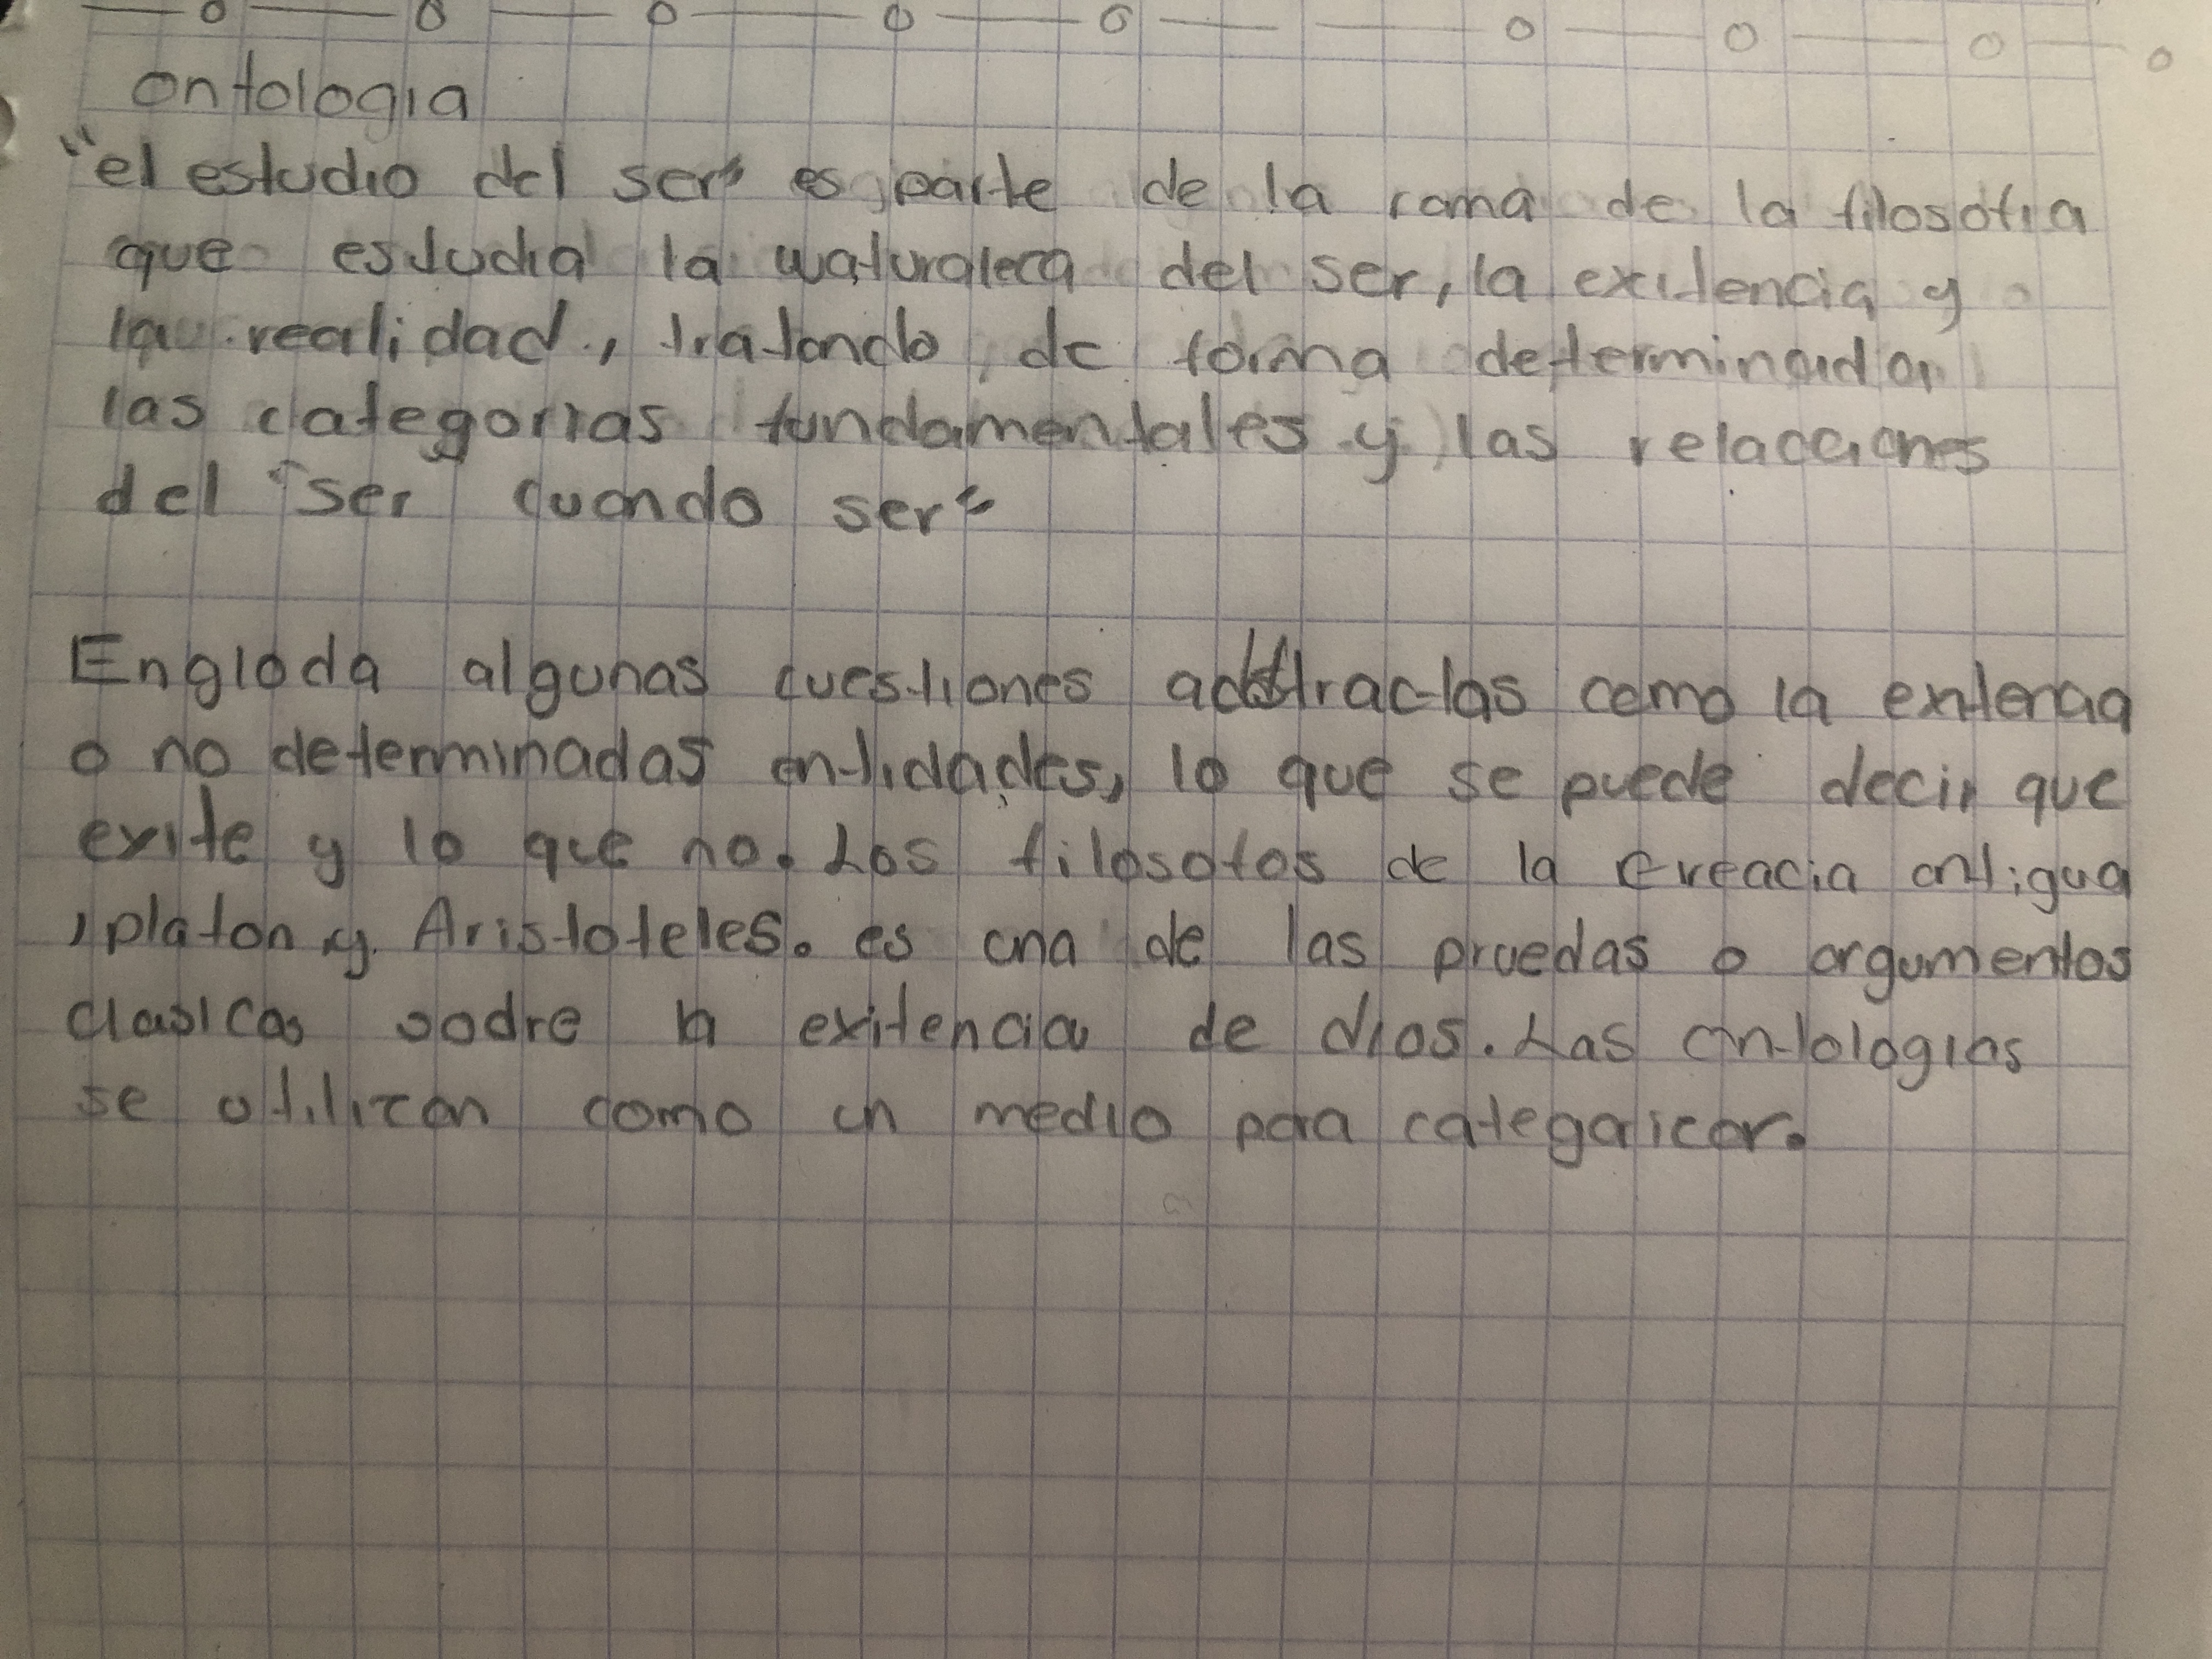 ontologia
"el estudio del ser" es parte de la rama de la filosofia
que estudia la waturaleca del ser, la exitencia y
la realidad, tratando de forma determinada
las categorias fundamentales y las relacciones
del "ser cuando ser"
Engloda algunas cuestiones adstractas como la extencia
o no determinadas entidades, lo que se puede decir que
exite y lo que no. Los filosofos de la Greacia antigua
, platon y Aristoteles. es una de las pruedas o argumentos
clasicos sodre la exitencia de dios. Las ontologias
se utilizan como un medio para categoricar.